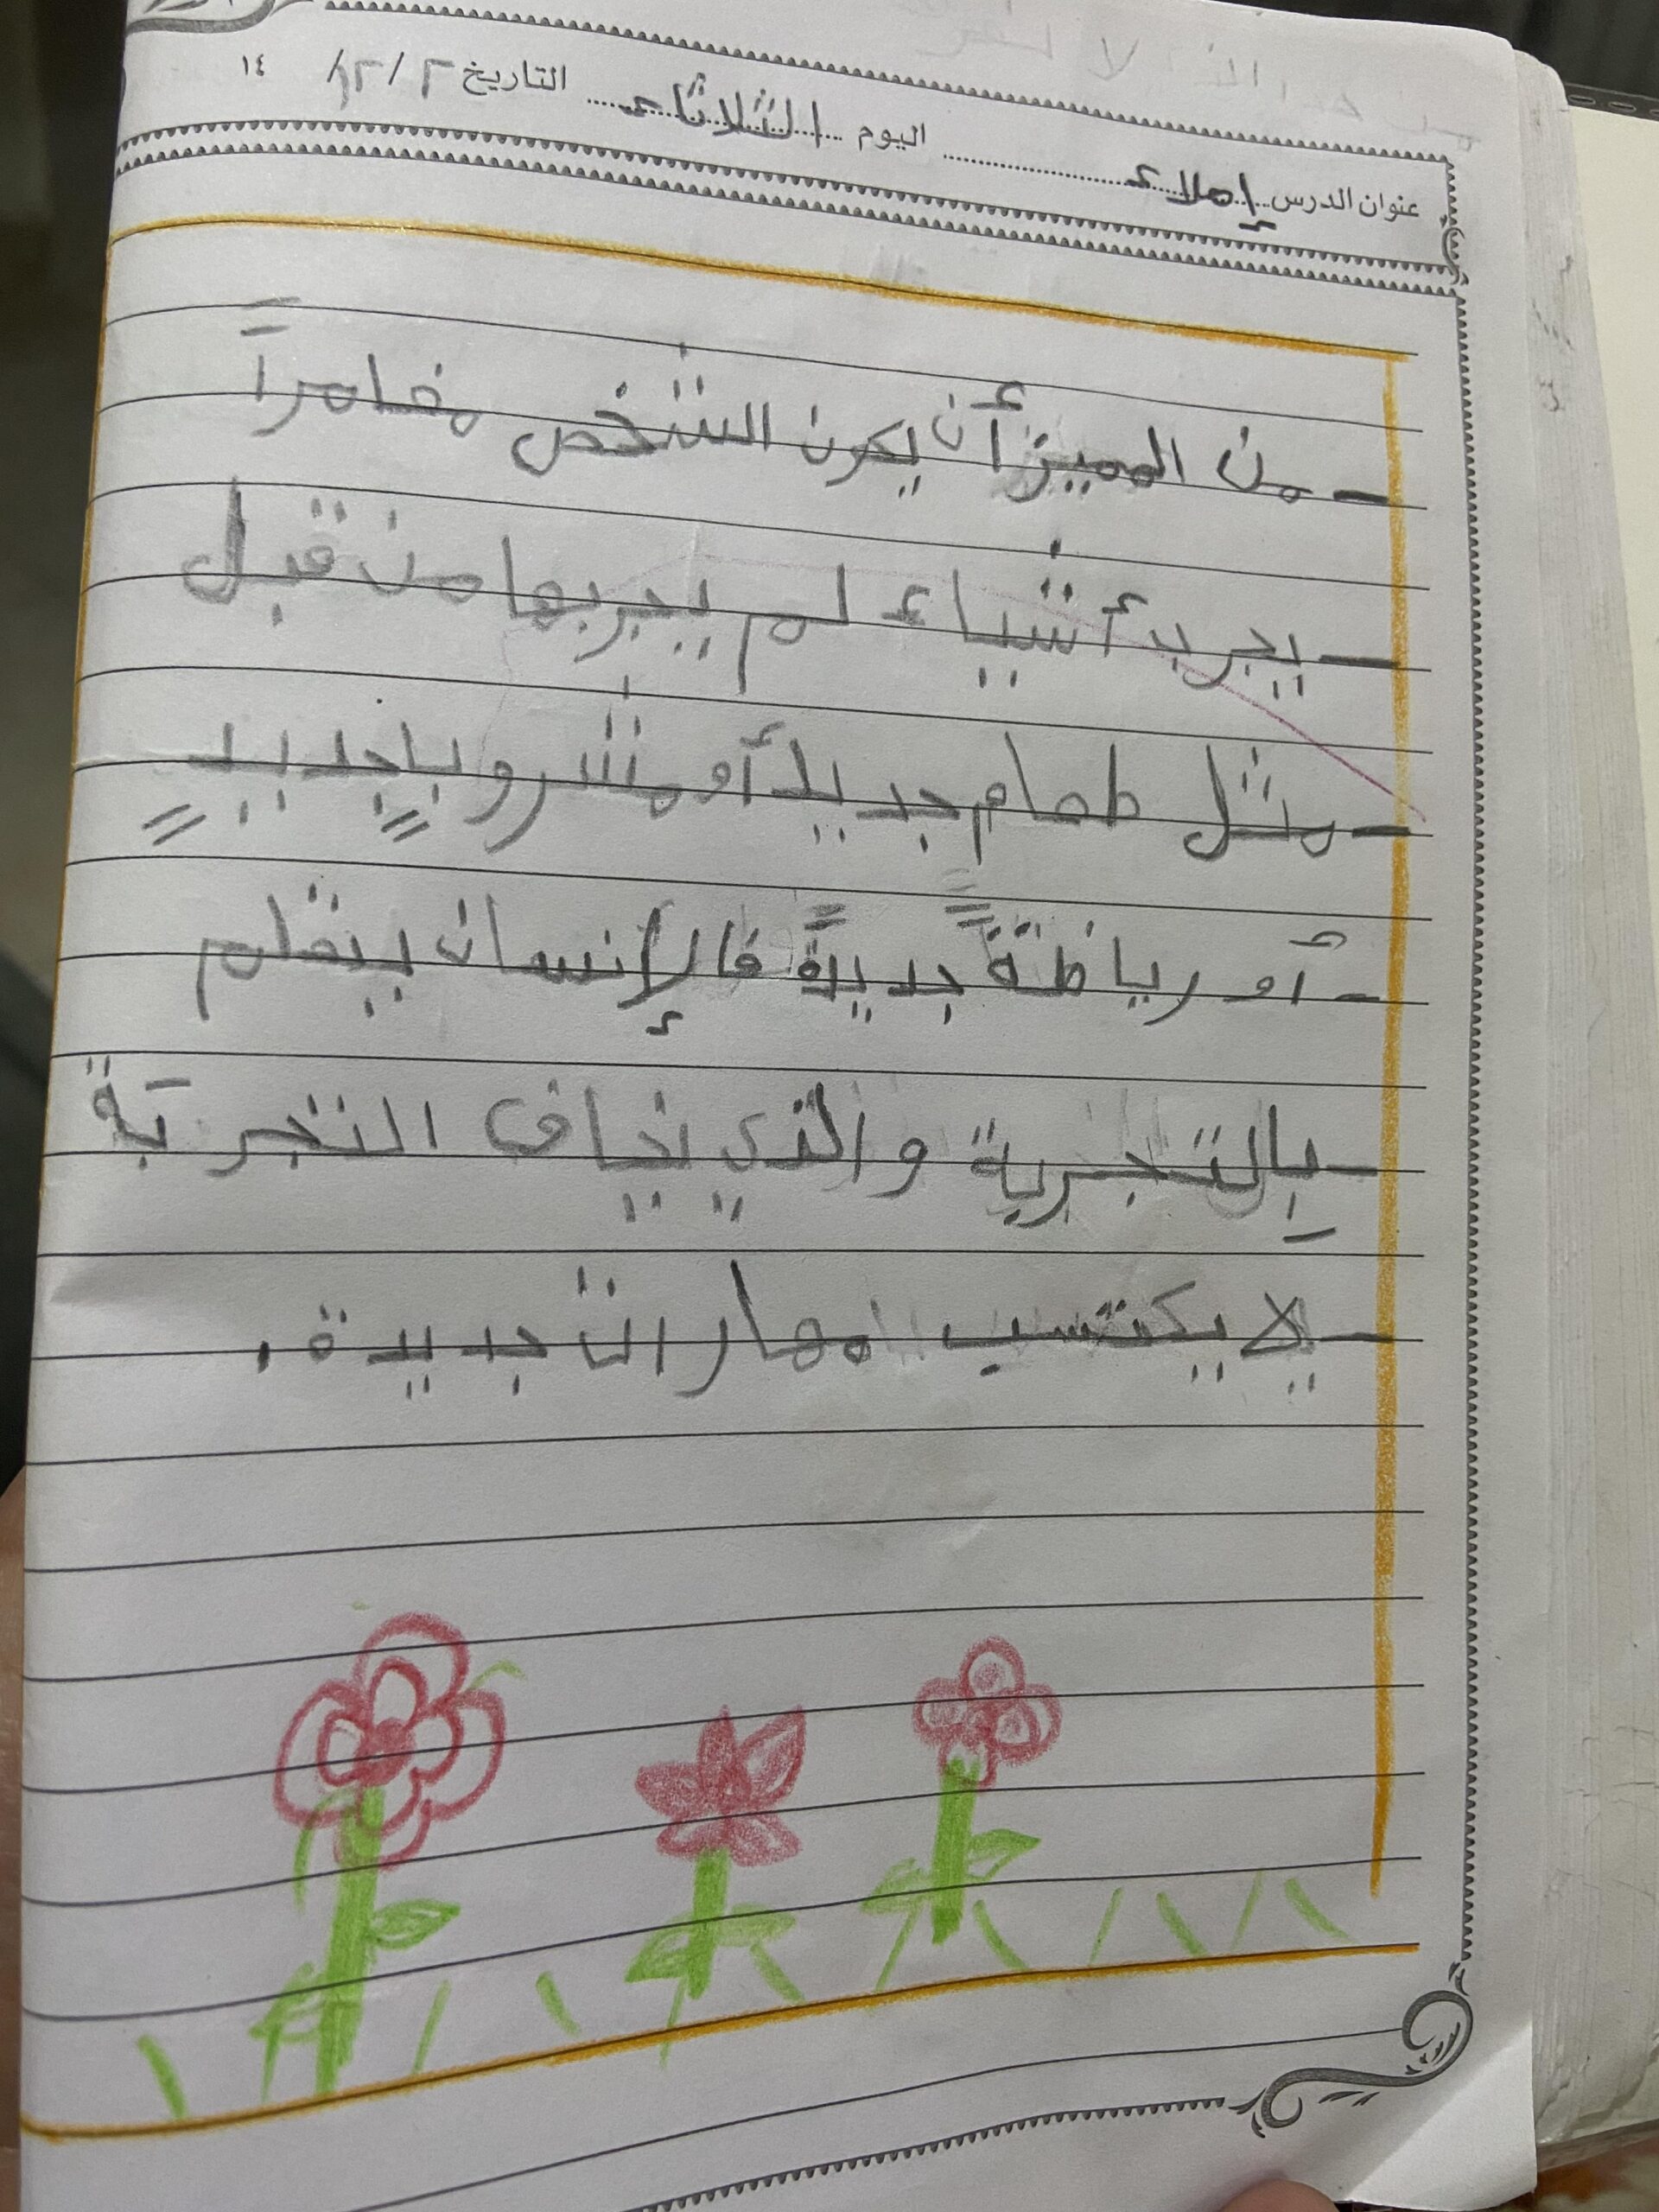 عنوان الدرس إملاء اليوم الثلاثاء التاريخ ٢/١٢/ ١٤
- من المميز أن يكون الشخص مغامراً
- يجرب أشياء لم يجربها من قبل
- مثل طعام جديد أو مشروباٍ جديدٍ
- أو رياظةً جديدةً فالإنسان يتغلم
- بِالتجربة والذي يخاف التجربَة
- لا يكتسب مهارات جديدة.